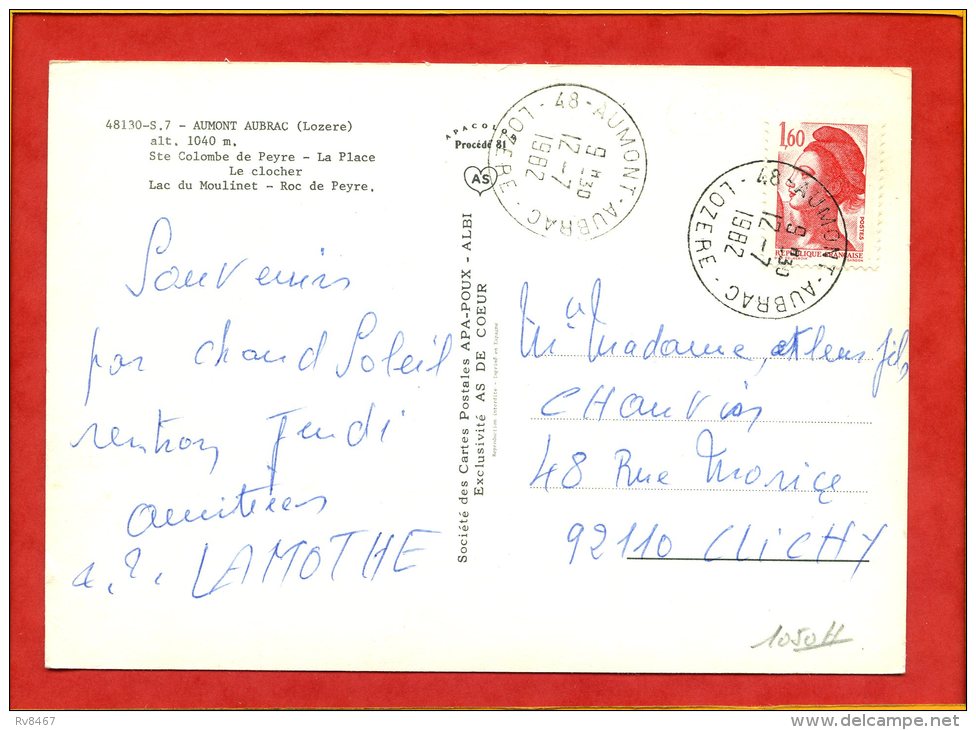 48130-S.7 - AUMONT AUBRAC (Lozere)
alt. 1040 m.
Ste Colombe de Peyre - La Place
Le clocher
Lac du Moulinet - Roc de Peyre.
APACOLOR
Procédé 81
AS
48-AUMONT-AUBRAC - LOZERE -
9 H30
12-7
1982
1,60
POSTES
REPUBLIQUE FRANÇAISE
48-AUMONT-AUBRAC - LOZERE -
9 H30
12-7
1982
Souvenirs
par chaud Soleil
rentrons Jeudi
amitiées
LAMOTHE
Société des Cartes Postales APA-POUX - ALBI
Exclusivité AS DE COEUR
Reproduction interdite - Imprimé en Espagne
Mr Madame, et leur fils
CHAUVIN
48 Rue Morice
92110 CLiCHY
1050H
Rv8467
www.delcampe.net